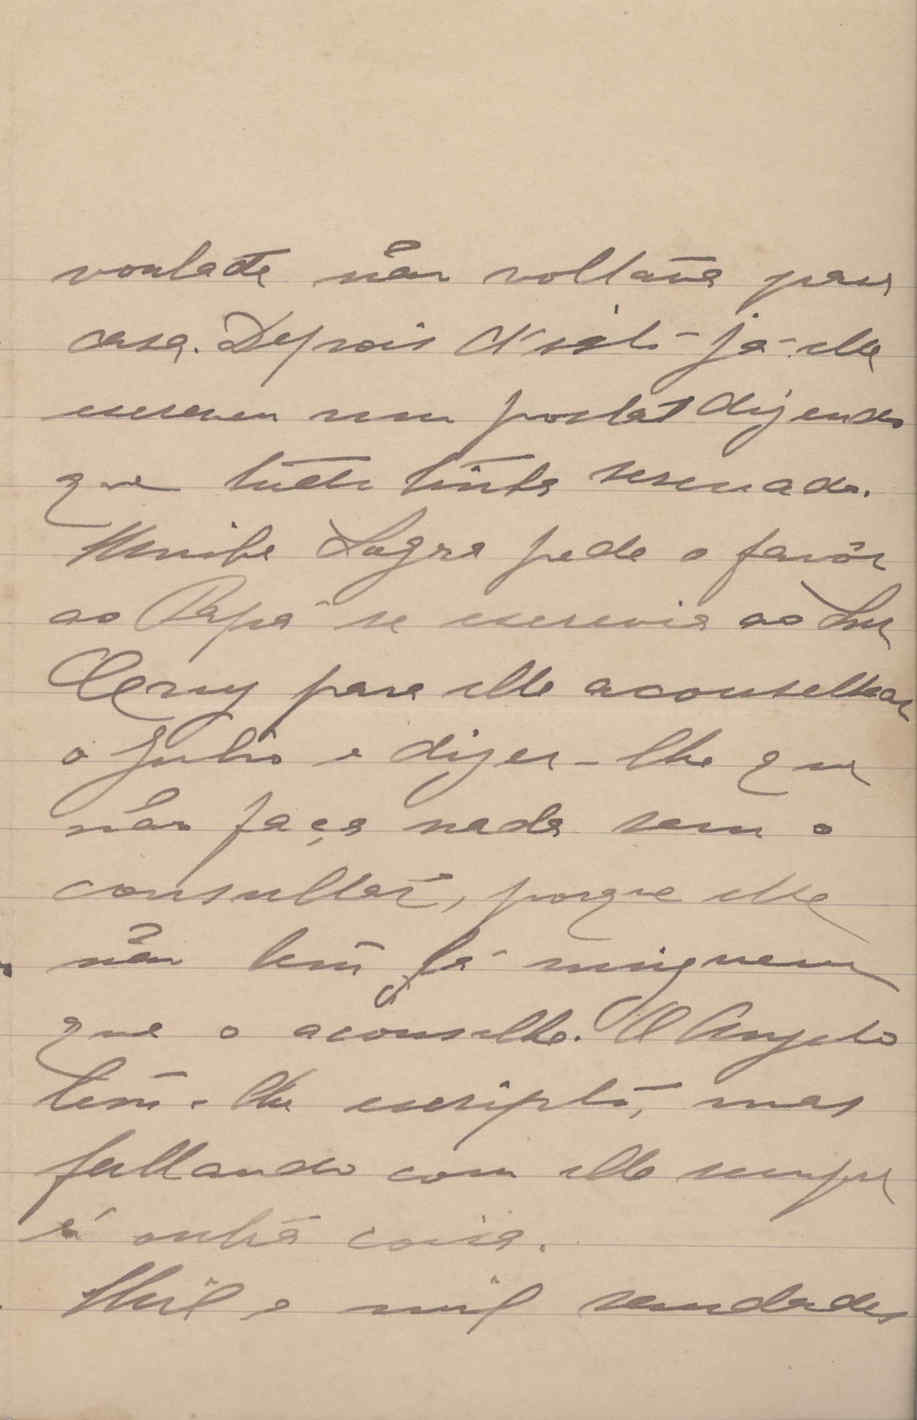 vontade não voltava para
casa. Depois d'isto já elle
escreveu um postal dizendo
que tudo tinha serenado.
Minha Sogra pede o favôr
ao Papá se escrevia ao Snr
para elle aconselhar
o Julio e dizer-lhe que
não faça nada sem o
consultar, porque elle
não tem lá ninguem
que o aconselhe. O Angelo
tem-lhe escripto, mas
fallando com elle sempre
é outra coisa.
Mil e mil saudades